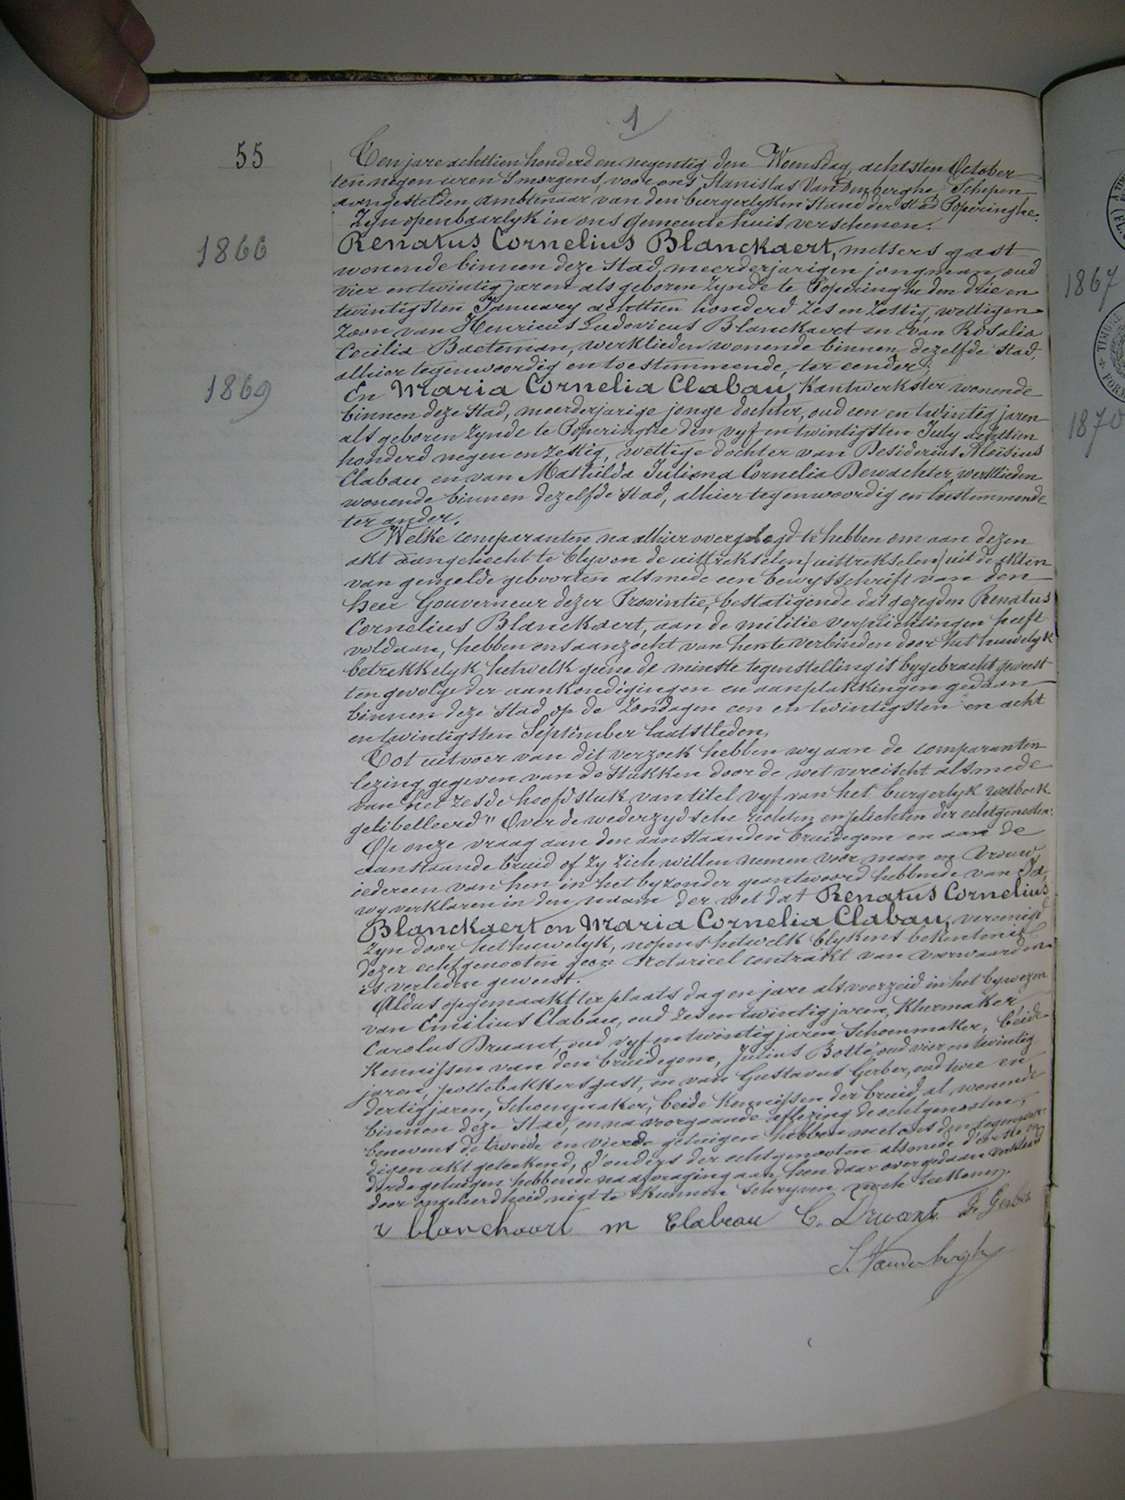 1
55
Een jare achttien honderd en negentig den Woensdag, achtsten October
ten negen uren 's morgens, voor ons Stanislas Van Den Berghe, Schepen
aangestelden ambtenaar van den burgerlyken Stand der Stad Poperinghe.
Zyn openbaarlyk in ons gemeentehuis verschenen:
1866
Renatus Cornelius Blanckaert, metsers gast
wonende binnen deze Stad, meerderjarigen jongman, oud
vier en twintig jaren als geboren zynde te Poperinghe den drie en
twintigsten January achttien honderd zes en zestig, wettigen
zoon van Henricus Ludovicus Blanckaert en van Rosalia
Cecilia Baeteman, werklieden wonende binnen dezelfde Stad,
alhier tegenwoordig en toestemmende, ter eender;
1869
En Maria Cornelia Clabau, Kantwerkster wonende
binnen deze Stad, meerderjarige jonge dochter, oud een en twintig jaren
als geboren zynde te Poperinghe den vyf en twintigsten July achttien
honderd negen en zestig, wettige dochter van Desiderius Aloïsius
Clabau en van Mathilda Juliana Cornelia Dewachter, werklieden
wonende binnen dezelfde Stad, alhier tegenwoordig en toestemmende
ter ander.
Welke comparanten na alhier overgelegd te hebben om aan dezen
akt aangehecht te blyven de uittrekselen / uittrekselen / uit de akten
van gemelde geboorten alsmede een bewysschrift van den
heer Gouverneur dezer Provintie, bestatigende dat gezegden Renatus
Cornelius Blanckaert, aan de militie verplichtingen heeft
voldaan, hebben ons aanzocht van hen te verbinden door het huwelyk
betrekkelyk hetwelk geene de minste tegenstelling is bygebracht geweest
ten gevolge der aankondigingen en aanplakkingen gedaan
binnen deze Stad op de Zondagen een en twintigsten en acht
en twintigsten September laatstleden.
Tot uitvoer van dit verzoek hebben wy aan de comparanten
lezing gegeven van de Stukken door de wet vereischt alsmede
van het zesde hoofdstuk van titel vyf van het burgerlyk wetboek
gelibelleerd "Over de wederzydsche rechten en plichten der echtgenoten.
Op onze vraag aan den aanstaanden bruidegom en aan de
aanstaande bruid of zy zich willen nemen voor man en vrouw
iedereen van hen in het byzonder geantwoord hebbende van Ja,
wy verklaren in den naam der wet dat Renatus Cornelius
Blanckaert en Maria Cornelia Clabau, vereenigd
zyn door het huwelyk, nopens hetwelk blykens bekentenis
dezer echtgenooten geen Notarieel contrakt van voorwaarden
is verleden geweest.
Aldus opgemaakt ter plaats dag en jare als voorzeid in het bywezen
van Emilius Clabau, oud zes en twintig jaren, Kleermaker
Carolus Druant, oud vyf en twintig jaren Schoenmaker, beide
Kennissen van den bruidegom, Julius Botte oud vier en twintig
jaren, pottebakkersgast, en van Gustavus Gerber, oud twee en
dertig jaren, Schoenmaker, beide Kennissen der bruid, al wonende
binnen deze Stad, en na voorgaande aflezing de echtgenooten,
benevens de tweede en vierde getuigen hebben met ons den tegenwoor-
digen akt geteekend, d'ouders der echtgenooten alsmede d'eerste en
derde getuigen hebbende na afvraging aan hen daar over gedaan verklaard
door ongeleerdheid niet te Kunnen Schryven noch teekenen.
r blanckaert m Clabau C. Druant G. Gerber
S. Vandenberghe
1867
1870